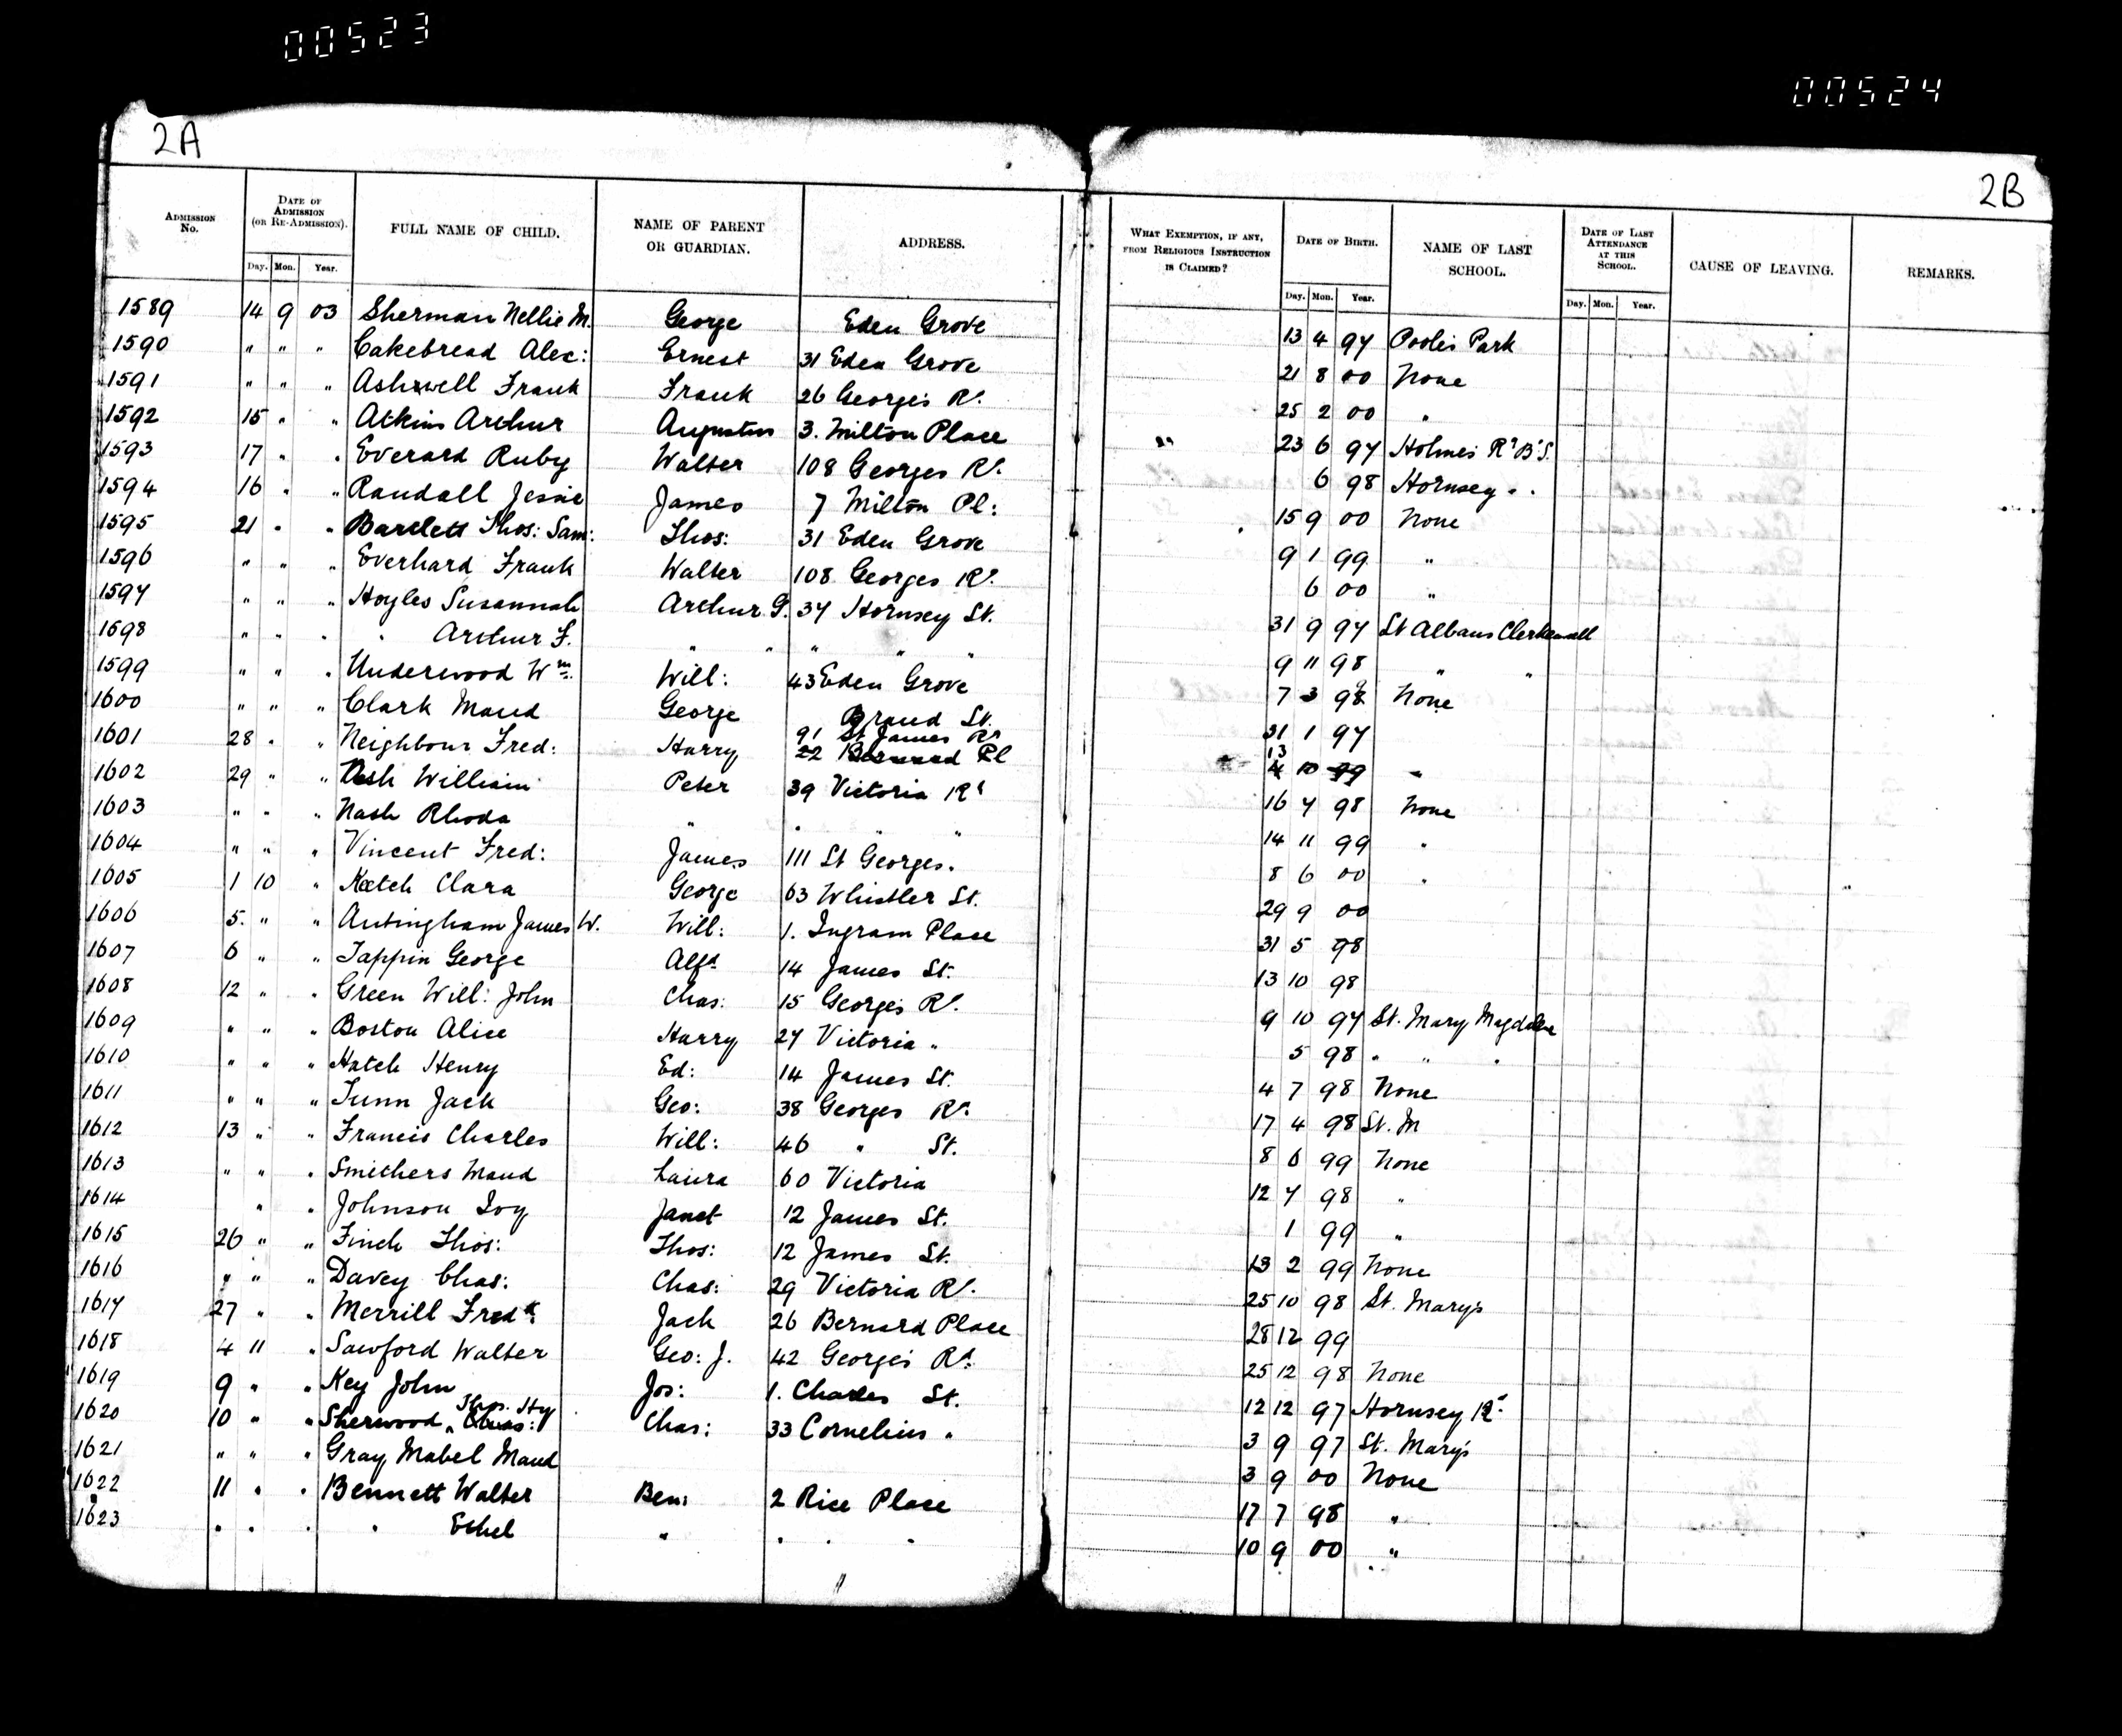 00523
00524
2A
2B
ADMISSION No. DATE OF ADMISSION (OR RE-ADMISSION). FULL NAME OF CHILD. NAME OF PARENT OR GUARDIAN. ADDRESS. WHAT EXEMPTION, IF ANY, FROM RELIGIOUS INSTRUCTION IS CLAIMED? DATE OF BIRTH. NAME OF LAST SCHOOL. DATE OF LAST ATTENDANCE AT THIS SCHOOL. CAUSE OF LEAVING. REMARKS.
Day. Mon. Year. Day. Mon. Year. Day. Mon. Year.
1589 14 9 03 Sherman Nellie M. George Eden Grove 13 4 97 Pooles Park
1590 " " " Cakebread Alec: Ernest 31 Eden Grove 21 8 00 None
1591 " " " Ashwell Frank Frank 26 Georges Rd. 25 2 00 "
1592 15 " " Atkins Arthur Augustus 3. Milton Place 23 6 97 Holmes Rd B'S.
1593 17 " " Everard Ruby Walter 108 Georges Rd. 6 98 Hornsey " "
1594 16 " " Randall Jessie James 7 Milton Pl: 15 9 00 None
1595 21 " " Bartlett Thos: Sam: Thos: 31 Eden Grove 9 1 99 "
1596 " " " Everhard Frank Walter 108 Georges Rd. 6 00 "
1597 " " " Hoyles Susannah Arthur G. 37 Hornsey St. 31 9 97 St Albans Clerkenwell
1698 " " " " Arthur F. " " " " " 9 11 98 " "
1599 " " " Underwood Wm. Will: 43 Eden Grove 7 3 98 None
1600 " " " Clark Maud George Brand St. 31 1 97
1601 28 " " Neighbour Fred: Harry 91 St James Rd 22 Bernard Pl 13 4 10 99 "
1602 29 " " Nash William Peter 39 Victoria Rd 16 7 98 None
1603 " " " Nash Rhoda " " " " 14 11 99 "
1604 " " " Vincent Fred: James 111 St Georges. 8 6 00 "
1605 1 10 " Ketch Clara George 63 Whistler St. 29 9 00
1606 5. " " Antingham James W. Will: 1. Ingram Place 31 5 98
1607 6 " " Tappin George Alfd. 14 James St. 13 10 98
1608 12 " " Green Will: John Chas: 15 Georges Rd. 9 10 97 St. Mary Magdalene
1609 " " " Boston Alice Harry 27 Victoria " 5 98 " " "
1610 " " " Hatch Henry Ed: 14 James St. 4 7 98 None
1611 " " " Tunn Jack Geo: 38 Georges Rd. 17 4 98 St. M
1612 13 " " Francis Charles Will: 46 " St. 8 6 99 None
1613 " " " Smithers Maud Laura 60 Victoria 12 7 98 "
1614 " " Johnson Ivy Janet 12 James St. 1 99 "
1615 26 " " Finch Thos: Thos: 12 James St. 13 2 99 None
1616 " " " Davey Chas: Chas: 29 Victoria Rd. 25 10 98 St. Mary's
1617 27 " " Merrill Fredk: Jack 26 Bernard Place 28 12 99
1618 4 11 " Sawford Walter Geo: J. 42 Georges Rd. 25 12 98 None
1619 9 " " Key John Jos: 1. Charles St. 12 12 97 Hornsey Rd.
1620 10 " " Sherwood Thos. Hy Chas: Chas: 33 Cornelius " 3 9 97 St. Mary's
1621 " " " Gray Mabel Maud 3 9 00 None
1622 11 " " Bennett Walter Ben: 2 Rice Place 17 7 98 "
1623 " " " " Ethel " " " " 10 9 00 "